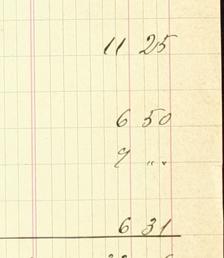 11 25
6 50
7 " "
6 31